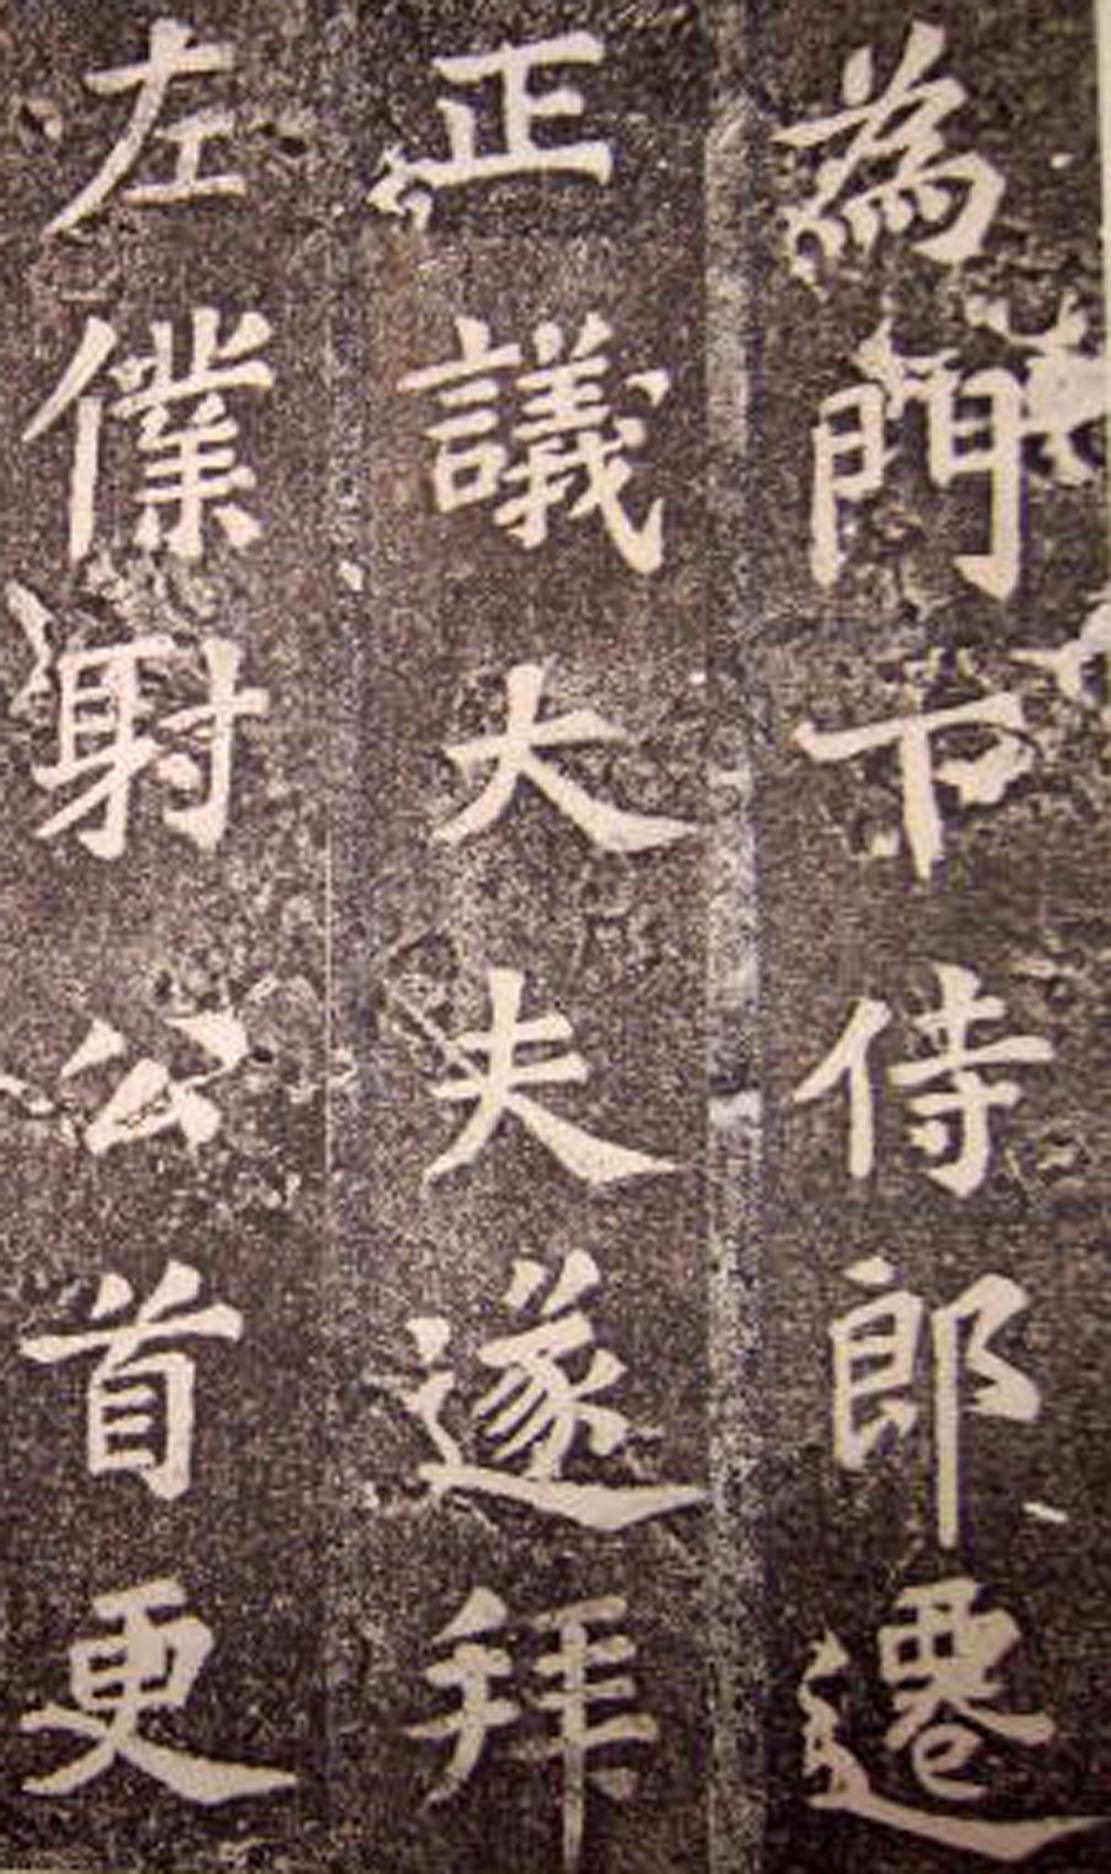 為門下侍郎遷
正議大夫遂拜
左僕射公首更